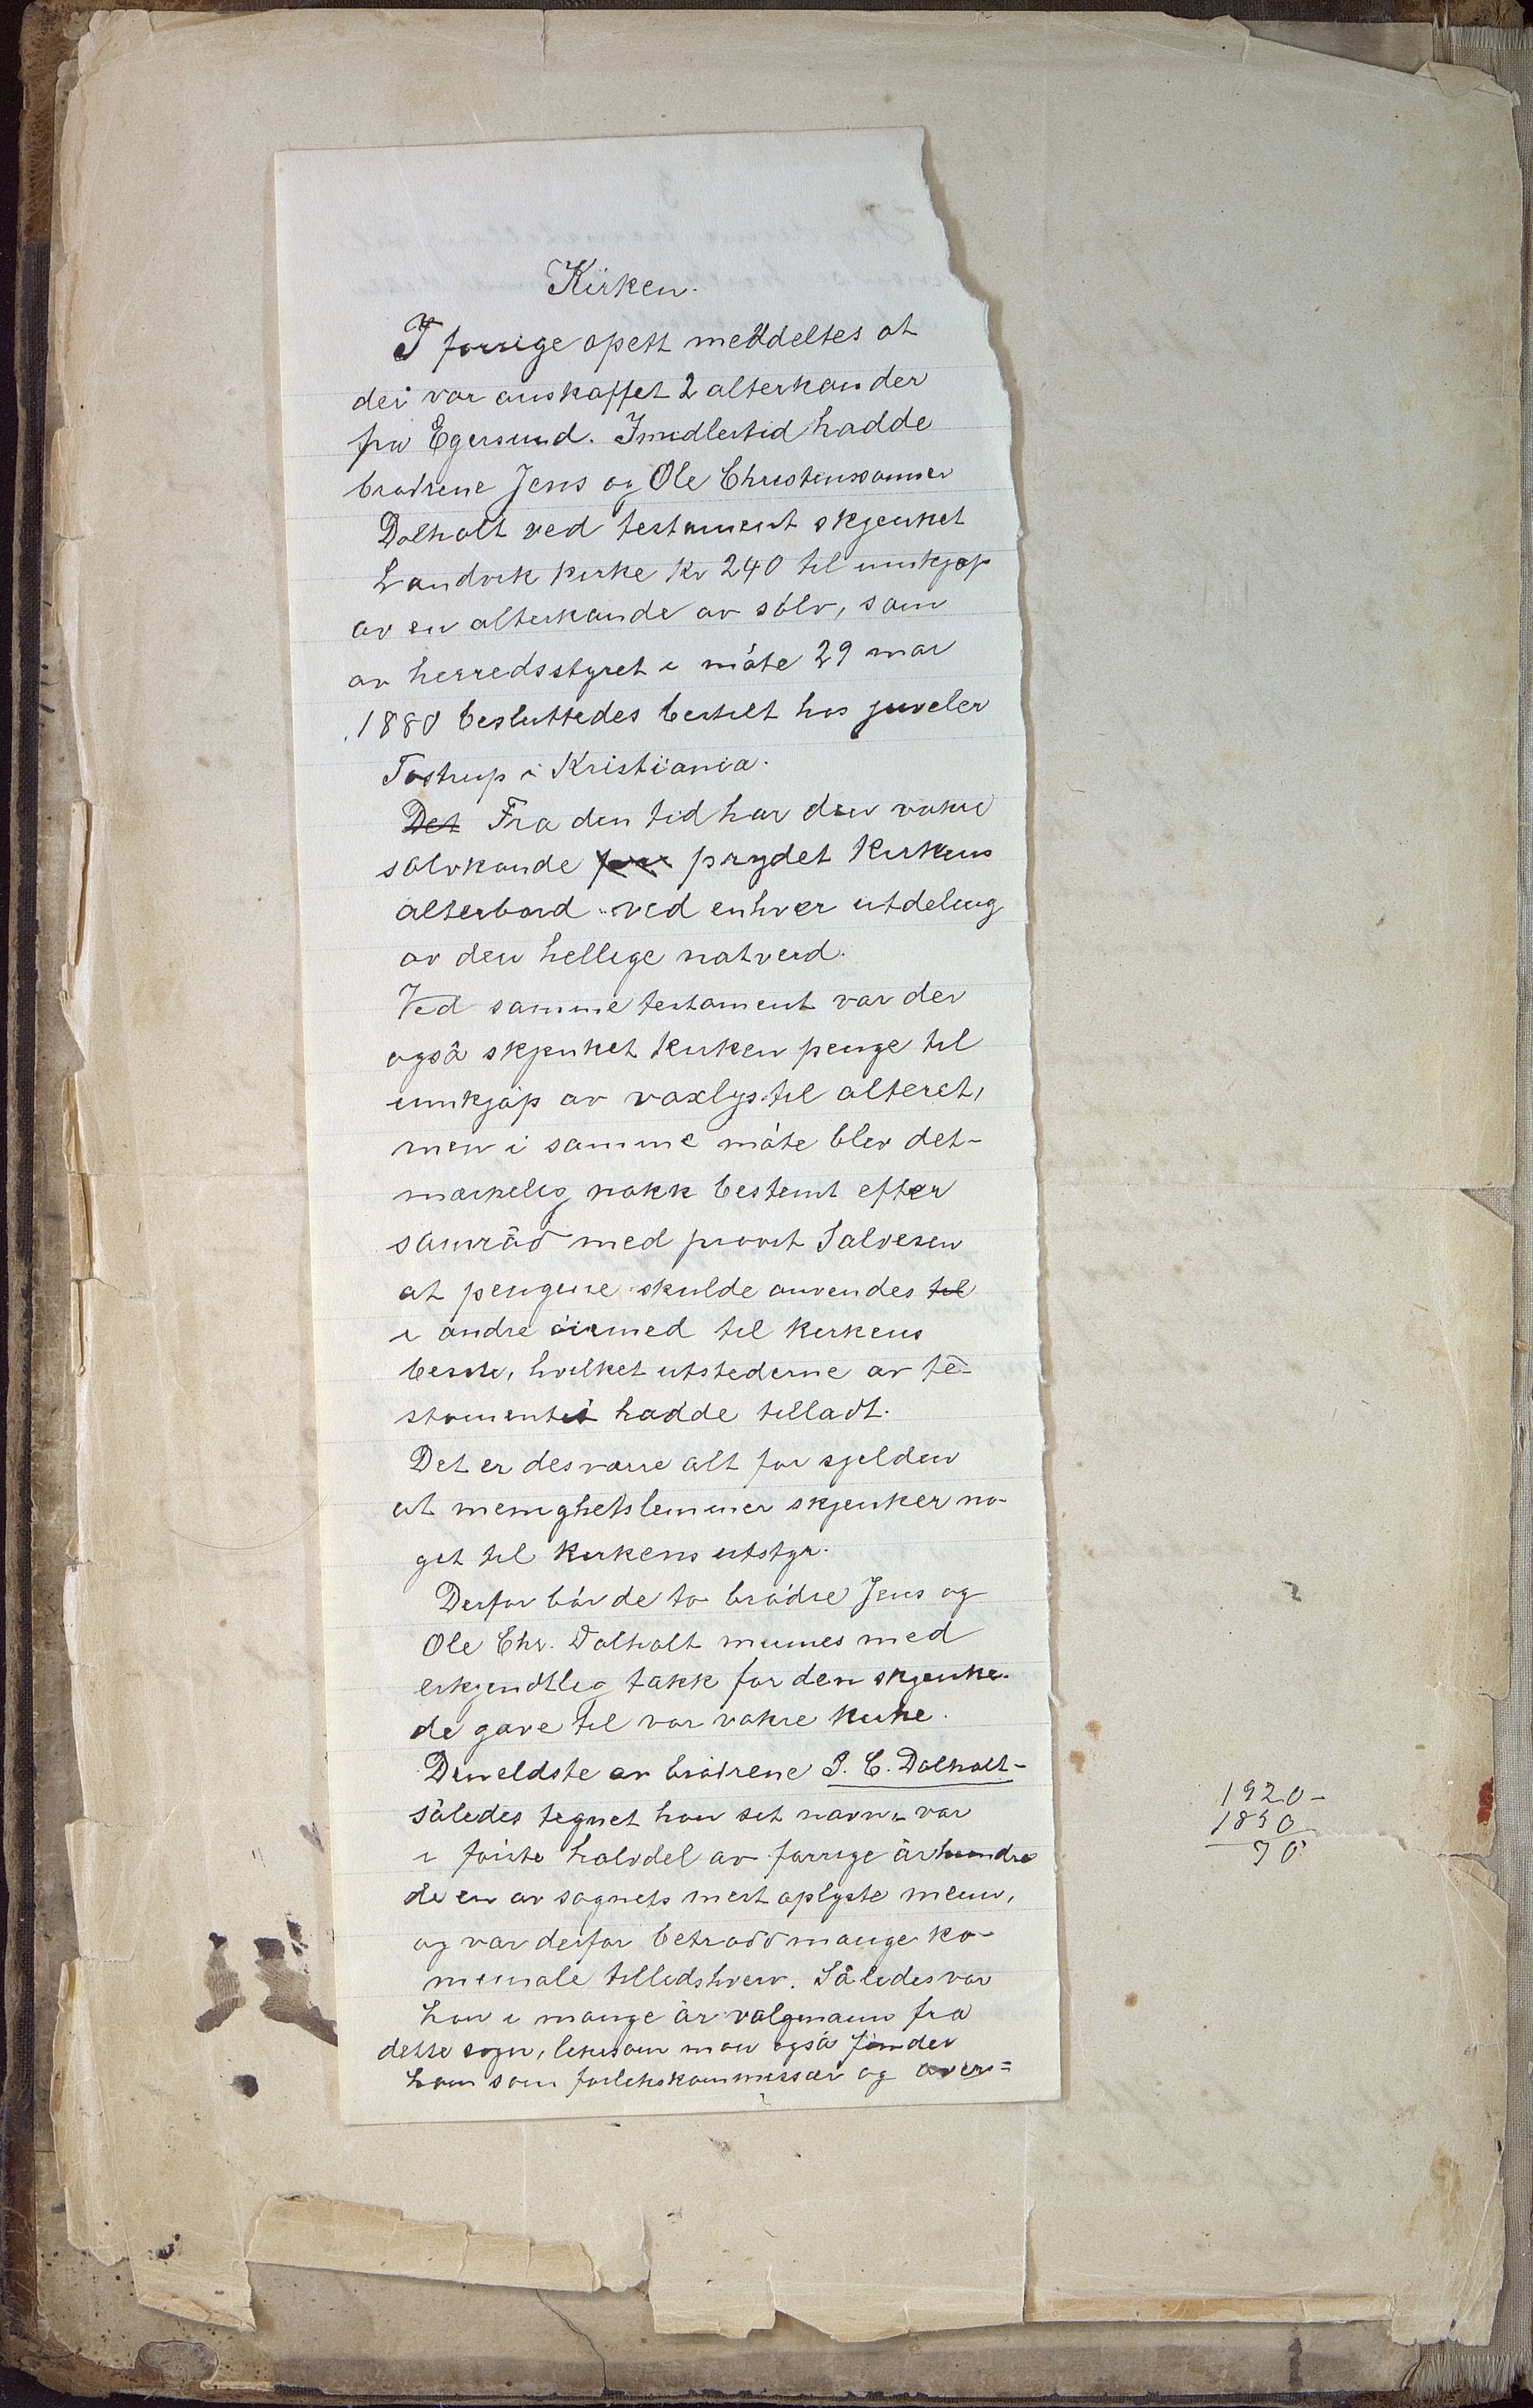 Kirken.
I forrige opsett meddeltes at
der var anskaffet 2 alterkander
fra Egersund. Imidlertid hadde
brødrene Jens og Ole Christenssønner
Dolholt ved testament skjenket
Landvik kirke Kr 240 til innkjøp
av en alterkande av sølv, som
av herredsstyret i møte 29 mar
1880 besluttedes bestilt hos juveler
Tostrup i Kristiania.
Det Fra den tid har den vakre
sølvkande prydet kirkens
alterbord ved enhver utdeling
av den hellige natverd.
Ved samme testament var der
også skjenket kirken penge til
innkjøp av voxlys til alteret,
men i samme møte blev det-
merkelig nokk bestemt efter
samråd med provst Salvesen
at pengene skulde anvendes til
i andre øiemed til kirkens
beste, hvilket utstederne av te-
stamentet hadde tilladt.
Det er desværre alt for sjelden
at menighetslemmer skjenker no-
get til kirkens utstyr.
Derfor bør de to brødre Jens og
Ole Chr. Dolholt minnes med
erkjendtlig takk for den skjenke-
de gave til vor vakre kirke.
Den eldste av brødrene J. C. Dolholt-
således tegnet han sit navn- var
i første halvdel av forrige århundre
de en av sognets mest oplyste menn,
og var derfor betrodd mange ko-
munale tillidshverv. Således var
han i mange år valgmann fra
dette sogn, likesom man også finder
ham som forlikskommissær og overs=
1920-
1850
70